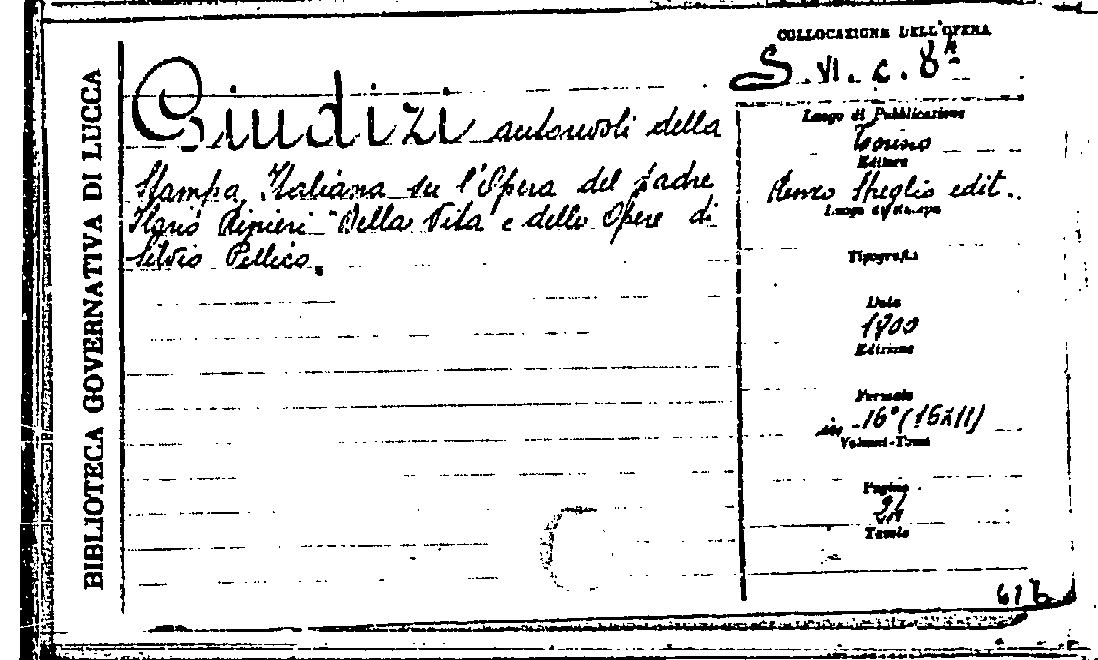 BIBLIOTECA GOVERNATIVA DI LUCCA
Giudizi autorevoli della
Stampa Italiana su l'Opera del padre
Ilario Rinieri "Della Vita e delle Opere di
Silvio Pellico.
COLLOCAZIONE DELL'OPERA
S. VI. c. 8
Luogo di Pubblicazione
Torino
Editore
Renzo Streglio edit.
Luogo di stampa
Tipografia
Data
1900
Edizione
Formato
in 16° (16x11)
Volumi-Tomi
Pagine
Tavole